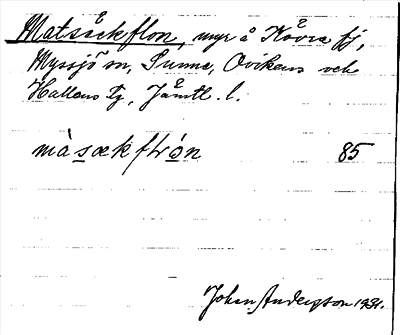 Matsåckflon, myr å Kövra fj,
Myssjö sn, Sunne, Ovikens och
Hallens tg, Jämtl. l.
màsækflo̱n 85
Johan Anderson 1931.